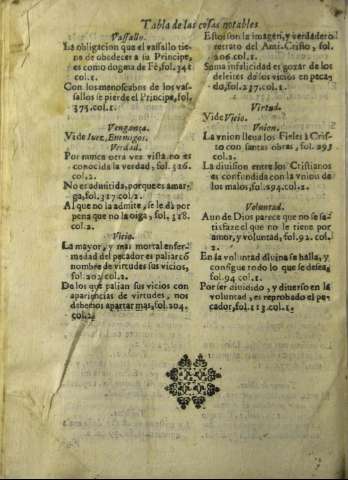 Tabla de las cosas notables
Vassallo.
La obligacion que el vassallo tie-
ne de obedecer a su Principe,
es como dogma de Fè, fol. 341
col. 1.
Con los menoscabos de los vas-
sallos se pierde el Principe, fol.
375. col. 1.
Vengança.
Vide Iuez, Enemigos.
Verdad.
Por nunca otra vez vista no es
conocida la verdad, fol. 316.
col. 2.
No es admitida, porque es amar-
ga, fol. 317. col. 2.
Al que no la admite, se le dà por
pena que no la oiga, fol. 318.
col. 2.
Vicio.
La mayor, y mas mortal enfer-
medad del pecador es paliar cõ
nombre de virtudes sus vicios,
fol. 203. col. 2.
De los que palian sus vicios con
apariencias de virtudes, nos
debemos apartar mas, fol. 204.
col. 2.
Estos son la imagen, y verdadero
retrato del Anti-Cristo, fol.
206. col. 1.
Suma infalicidad es gozar de los
deleites de los vicios en peca-
do, fol. 237. col. 1.
Virtud.
Vide Vicio.
Vnion.
La vnion lleua los Fieles à Cris-
to con santas obras, fol. 293
col. 2.
La diuision entre los Cristianos
es confundida con la vniou de
los malos, fol. 294. col. 2.
Voluntad.
Aun de Dios parece que no se sa-
tisfaze el que no le tiene por
amor, y voluntad, fol. 92. col.
2.
En la voluntad diuina se halla, y
consigue todo lo que se desea,
fol. 94. col. 1.
Por ser diuidido, y diuerso en la
voluntad, es reprobado el pe-
cador, fol. 113. col. 1.